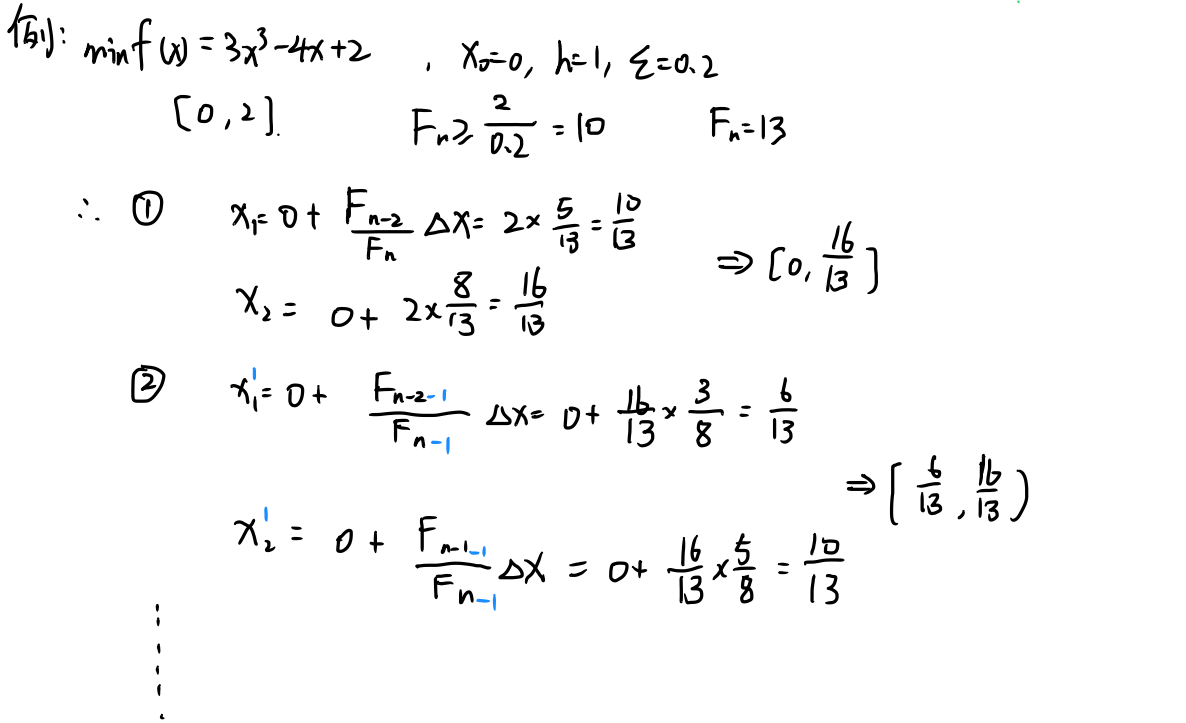 例: min f(x) = 3x³-4x+2 , x₀=0, h=1, ξ=0.2
[0,2]. Fₙ≥ 2/0.2 = 10 Fₙ=13
∴ ① x₁= 0 + Fₙ₋₂/Fₙ Δx= 2× 5/13 = 10/13
⇒ [0, 16/13]
x₂ = 0+ 2× 8/13 = 16/13
② x₁'= 0+ Fₙ₋₂₋₁/Fₙ₋₁ Δx= 0+ 16/13 × 3/8 = 6/13
⇒ [6/13, 16/13)
x₂' = 0 + Fₙ₋₁₋₁/Fₙ₋₁ Δx = 0+ 16/13 × 5/8 = 10/13